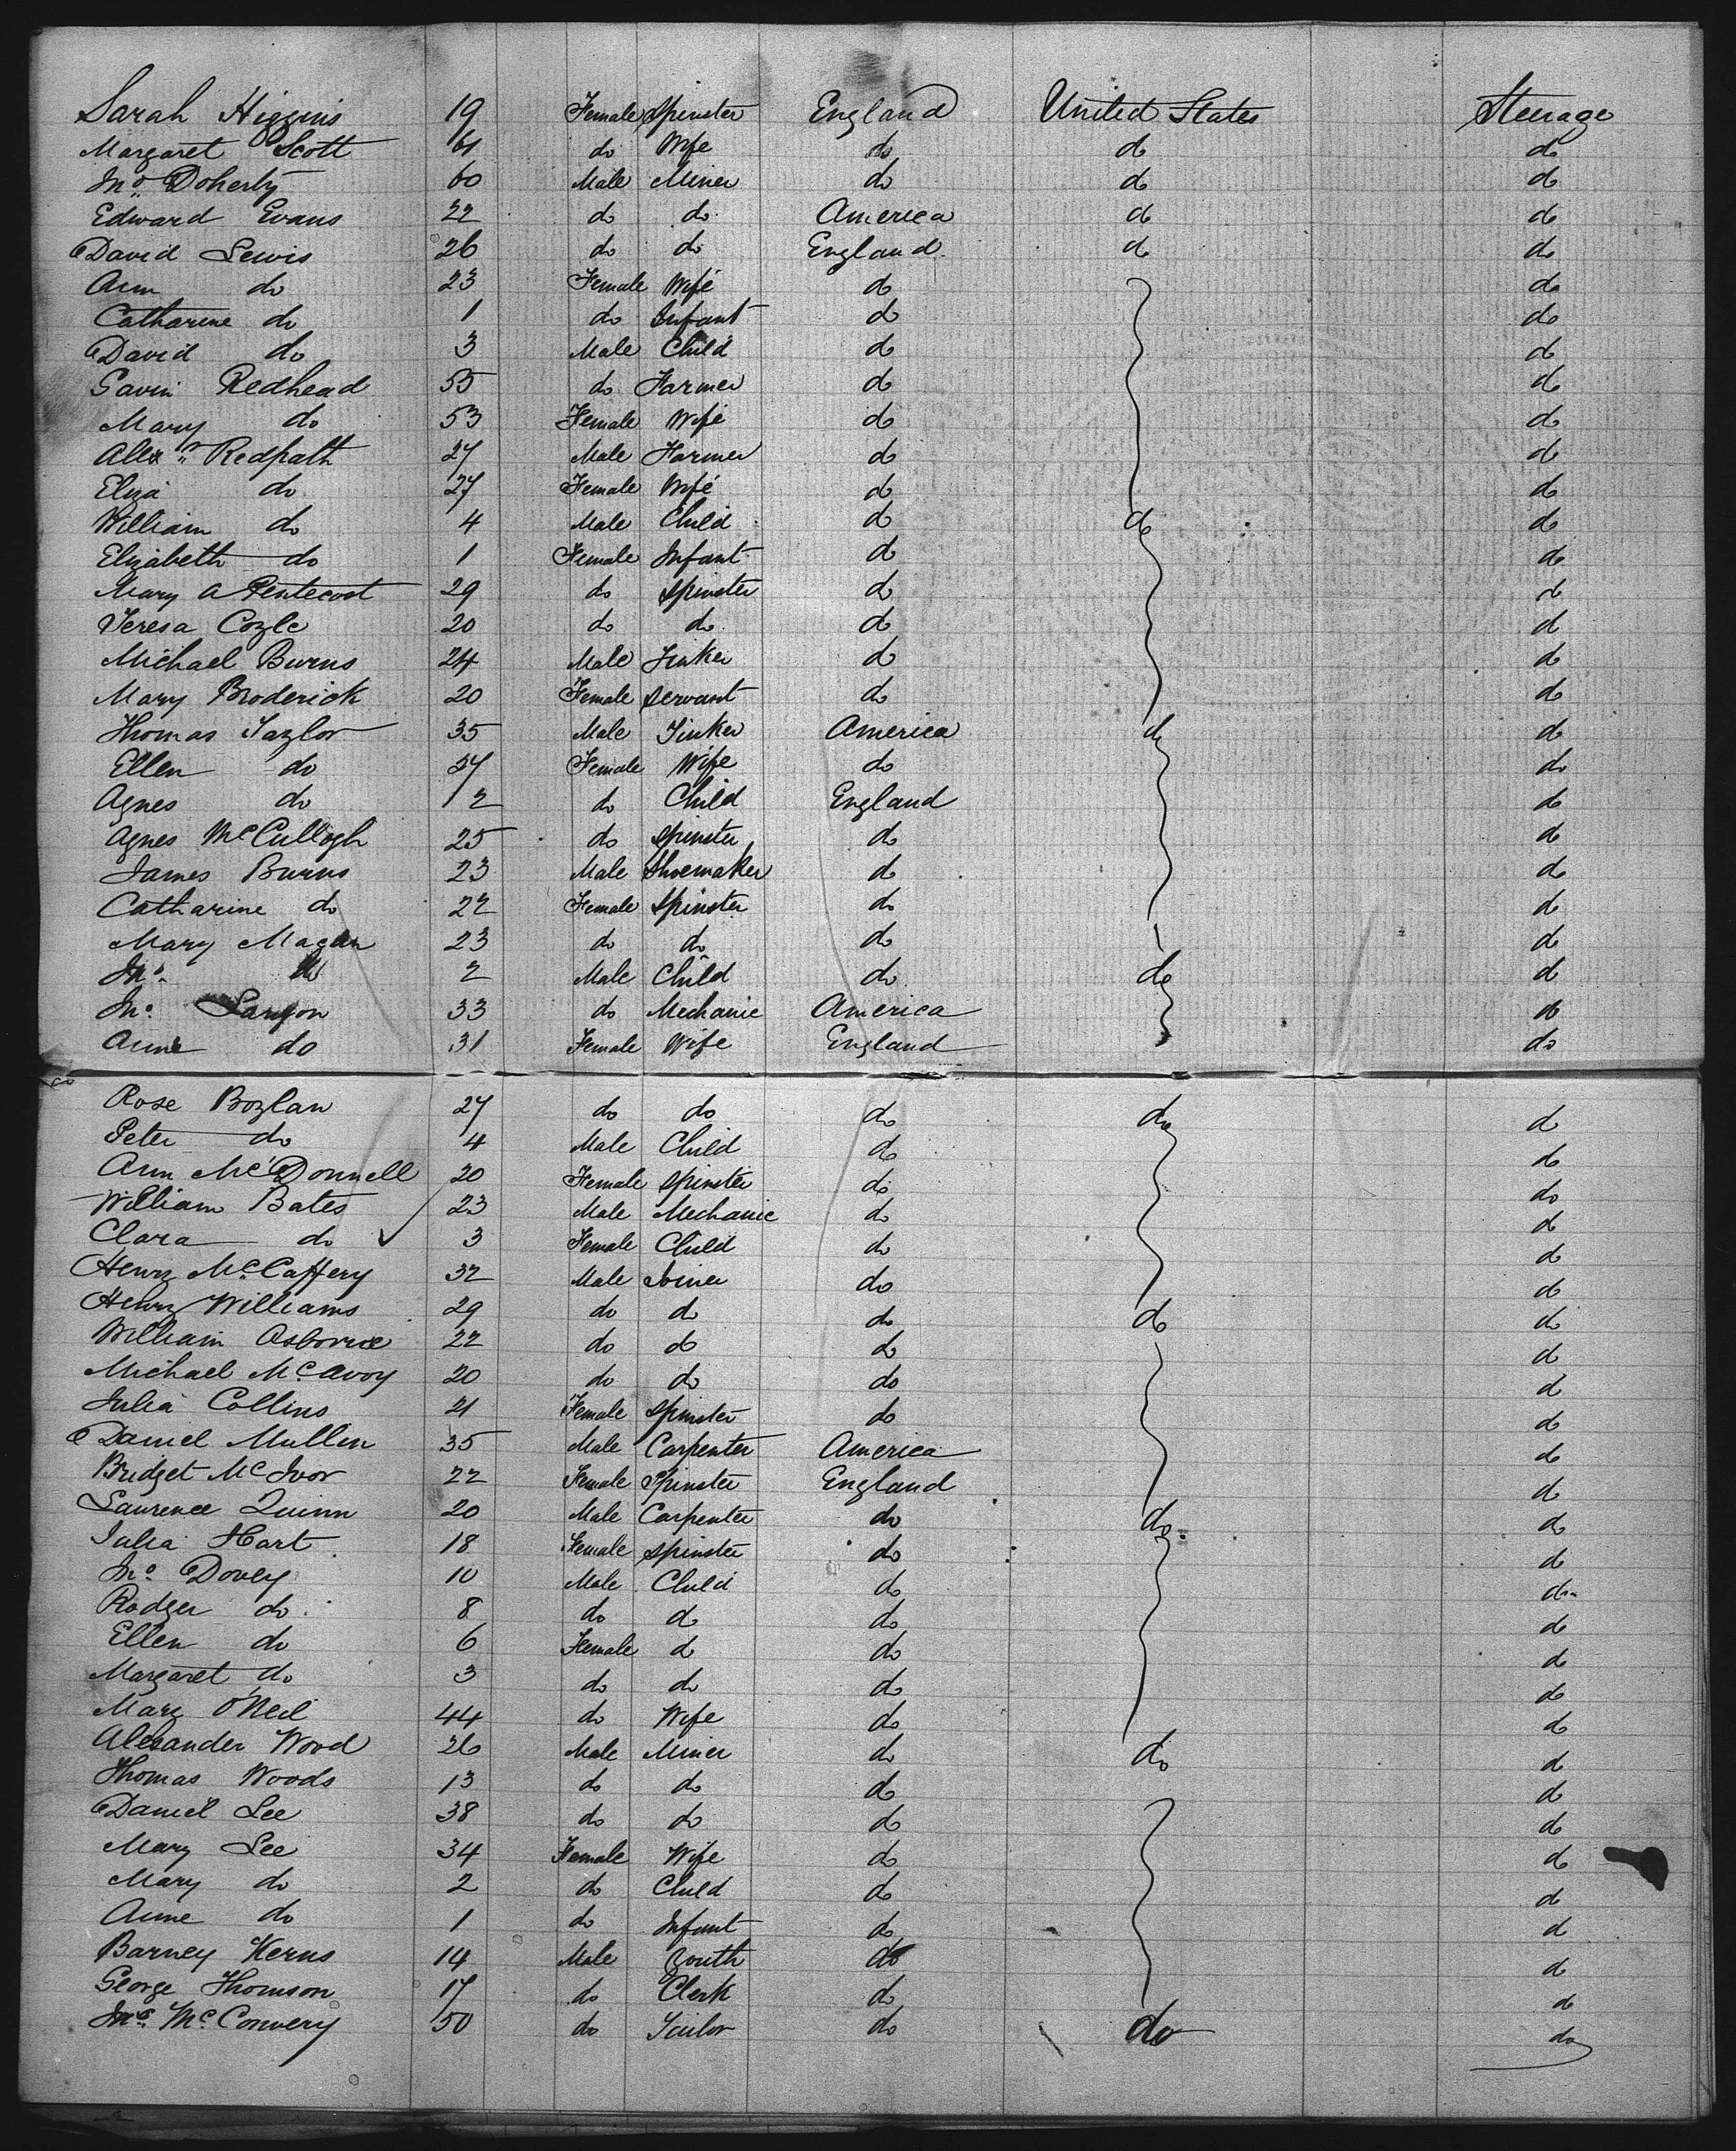 Sarah Higgins 19 Female Spinster England United States Steerage
Margaret Scott 61 do Wife do do do
Jno. Doherty 60 Male Miner do do do
Edward Evans 22 do do America do do
David Lewis 26 do do England do do
Ann do 23 Female Wife do do
Catharine do 1 do Infant do do
David do 3 Male Child do do
Gavin Redhead 55 do Farmer do do
Mary do 53 Female Wife do do
Alexr Redpath 27 Male Farmer do do
Eliza do 27 Female Wife do do
William do 4 Male Child do do do
Elizabeth do 1 Female Infant do do
Mary A Pentecost 29 do Spinster do do
Teresa Coyle 20 do do do do
Michael Burns 24 Male Tinker do do
Mary Broderick 20 Female Servant do do
Thomas Taylor 35 Male Tinker America do do
Ellen do 27 Female Wife do do
Agnes do 2 do Child England do
Agnes McCullogh 25 do Spinster do do
James Burns 23 Male Shoemaker do do
Catharine do 22 Female Spinster do do
Mary Magan 23 do do do do
Jno. do 2 Male Child do do do
Jno. 33 do Mechanic America do
Anne do 31 Female Wife England do
Rose Boylan 27 do do do do do
Peter do 4 Male Child do do
Ann McDonnell 20 Female Spinster do do
William Bates 23 Male Mechanic do do
Clara do 3 Female Child do do
Henry McCaffery 32 Male Joiner do do
Henry Williams 29 do do do do do
William Osborne 22 do do do do
Michael McAvoy 20 do do do do
Julia Collins 21 Female Spinster do do
Daniel Mullen 35 Male Carpenter America do
Bridget McIvor 22 Female Spinster England do
Laurence Quinn 20 Male Carpenter do do do
Julia Hart 18 Female Spinster do do
Jno. Dovey 10 Male Child do do
Rodger do 8 do do do do
Ellen do 6 Female do do do
Margaret do 3 do do do do
Mary O'Neil 44 do Wife do do
Alexander Wood 26 Male Miner do do do
Thomas Woods 13 do do do do
Daniel Lee 38 do do do do
Mary Lee 34 Female Wife do do
Mary do 2 do Child do do
Anne do 1 do Infant do do
Barney Kerns 14 Male Youth do do
George Thomson 17 do Clerk do do
Jno. McConvery 50 do Tailor do do do